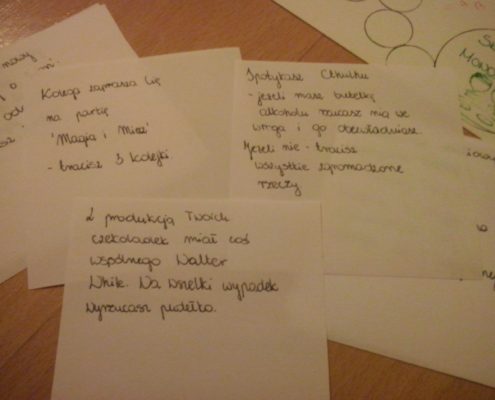 nowy
Kolega zaprasza Cię
na partię
'Magia i Miecz'
- tracisz 3 kolejki.
Spotykasz Cthulhu
- jeżeli masz butelkę
alkoholu rzucasz nią we
wroga i go obezwładniasz.
Jeżeli nie - tracisz
wszystkie zgromadzone
rzeczy
Z produkcją Twoich
czekoladek miał coś
wspólnego Walter
White. Na wszelki wypadek
wyrzucasz pudełko.